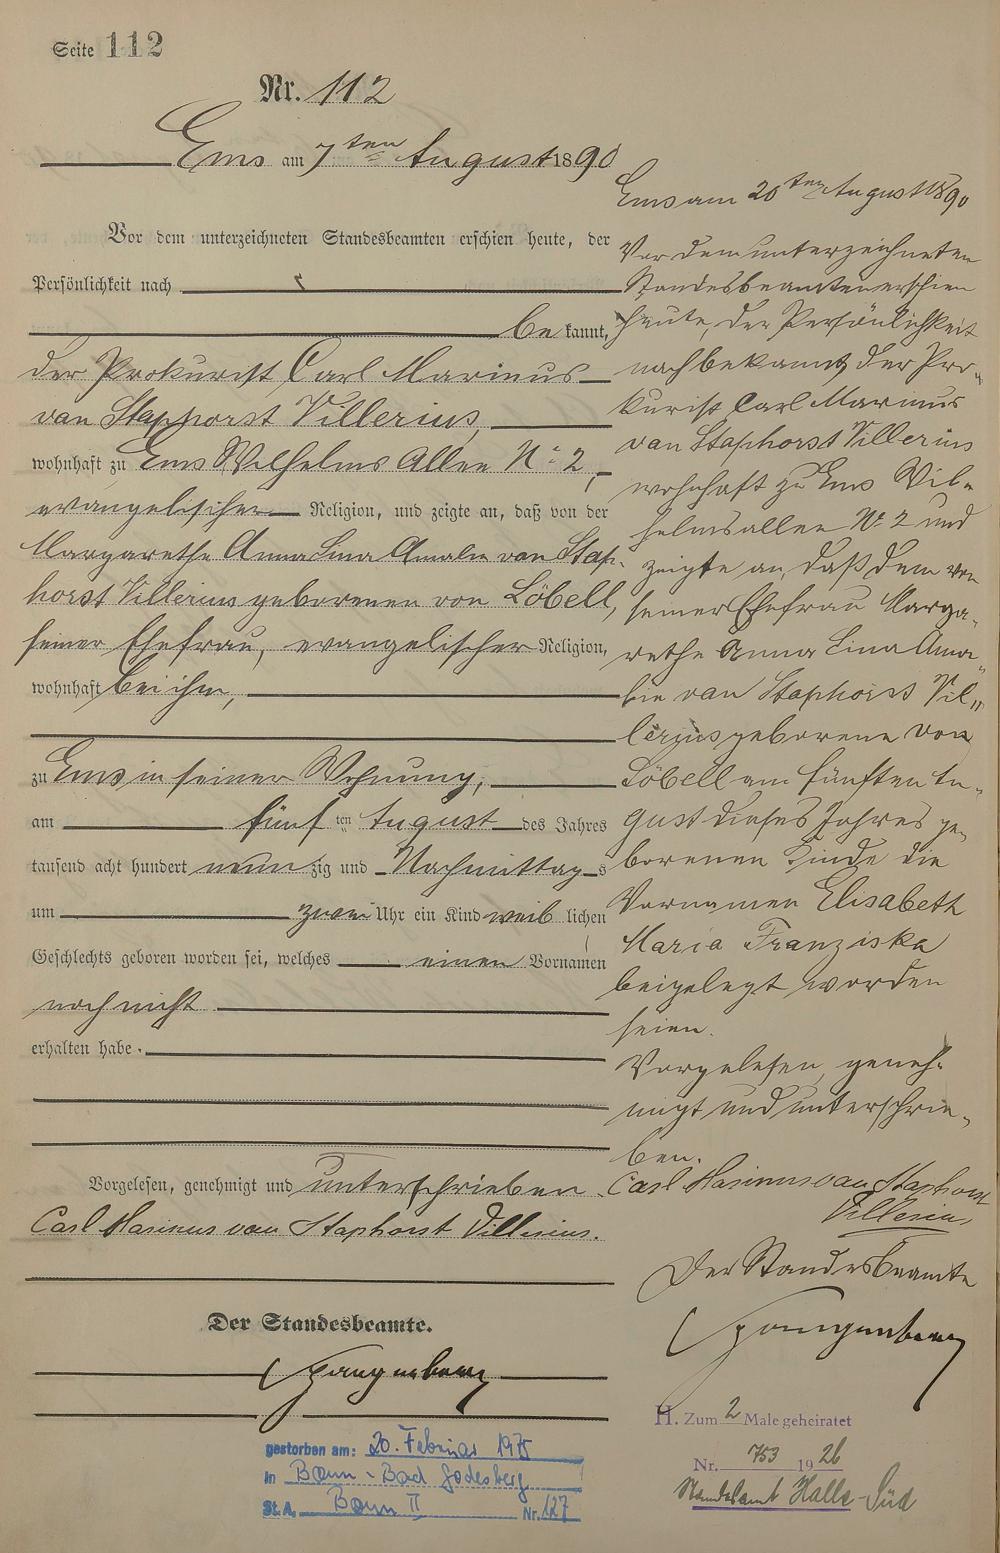 Seite 112
Nr. 112
Ems am 7ten August 1890
Vor dem unterzeichneten Standesbeamten erschien heute, der
Persönlichkeit nach
bekannt,
der Prokurist Carl Marinus
van Staphorst Villerius,
wohnhaft zu Ems Wilhelms Allee No 2,
evangelischer Religion, und zeigte an, daß von der
Margarethe Anna Lina Amalie van Stap-
horst Villerius geborenen von Löbell,
seiner Ehefrau, evangelischer Religion,
wohnhaft bei ihm,
zu Ems in seiner Wohnung,
am fünften August des Jahres
tausend acht hundert neunzig und Nachmittags
um zwei Uhr ein Kind weiblichen
Geschlechts geboren worden sei, welches einen Vornamen
noch nicht
erhalten habe.
Vorgelesen, genehmigt und unterschrieben.
Carl Marinus van Staphorst Villerius.
Der Standesbeamte.
Spangenberg
gestorben am: 20. Februar 1975
in Bonn - Bad Godesberg
St.A. Bonn II Nr. 127
Ems am 20ten August 1890
Vor dem unterzeichneten
Standesbeamten erschien
heute, der Persönlichkeit
nach bekannt, der Pro-
kurist Carl Marinus
van Staphorst Villerius
wohnhaft zu Ems Wil-
helmsallee No 2 und
zeigte an, daß dem von
seiner Ehefrau Marga-
rethe Anna Lina Ama-
lie van Staphorst Vil-
lerius geborene von
Löbell am fünften Au-
gust dieses Jahres ge-
borenen Kinde die
Vornamen Elisabeth
Maria Franziska
beigelegt worden
seien.
Vorgelesen, geneh-
migt und unterschrie-
ben.
Carl Marinus van Staphorst
Villerius
Der Standesbeamte
Spangenberg
H. Zum 2 Male geheiratet
Nr. 753 1926
Standesamt Halle-Süd